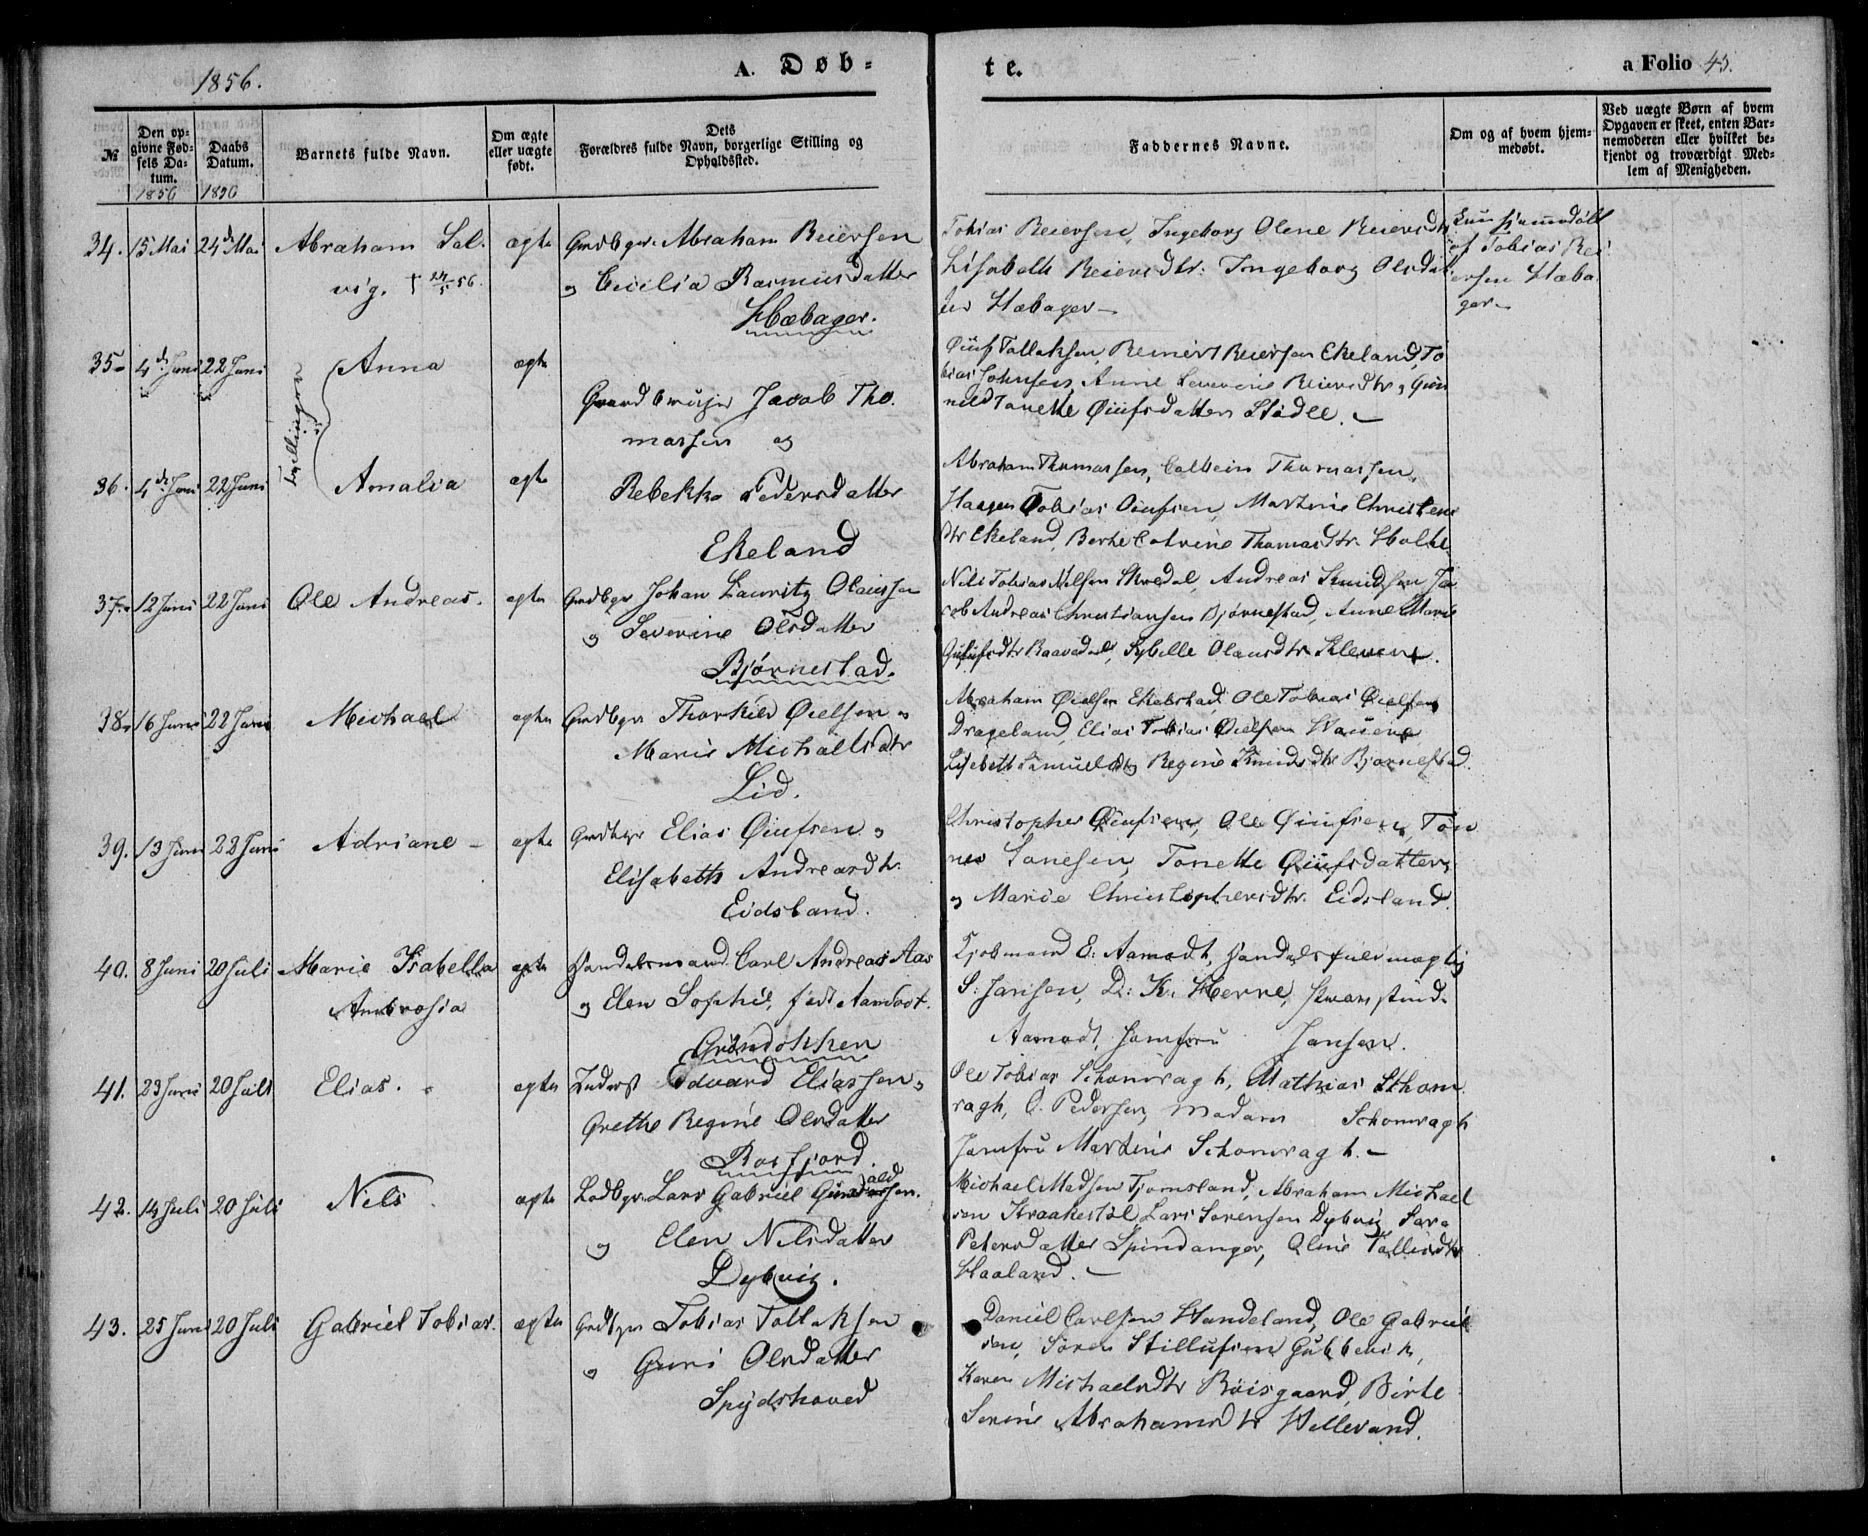 1856.
A. Døb-
te.
a Folio 43.
№
Den op-
givne Fød-
sels Da-
tum.
1856
Daabs
Datum.
1856
Barnets fulde Navn.
Om ægte
eller uægte
født.
Dets
Forældres fulde Navn, borgerlige Stilling og
Opholdssted.
Faddernes Navne.
Om og af hvem hjem-
medøbt.
Ved uægte Børn af hvem
Opgaven er skeet, enten Bar-
nemoderen eller hvilket be-
kjendt og troværdigt Med-
lem af Menigheden.
34. 15 Mai 24de Mai Abraham Sal-
vig. † 24/5 56.
ægte
Grdbgr. Abraham Reiersen
og Cecilia Rasmusdatter
Hæbager.
Tobias Reiersen, Ingeborg Oline Reiersdtr
Lisabeth Reiersdtr: Ingeborg Olsdat
ter Hæbager –
hjemmedøbt
af Tobias Rei
ersen Hæba
ger –
35 4de Juni 22 Juni
Tvillinger
Anna ægte
Gaardbruger Jacob Tho.
massen og
Øiuf Tallaksen, Reinert Reiersen Ekeland, To
bias Johnsen, Anne Severine Reiersdtr, Gun
nild Tonette Øiufsdatter Stédle. –
36. 4de Juni 22 Juni Amalia ægte
Rebekka Pedersdatter
Ekeland
Abraham Thomassen, Calbein Thomassen,
Haagen Tobias Øiufsen, Martine Christens
dtr Ekeland, Berte Catrine Thomasdtr. Holte
37. 12 Juni 22 Juni Ole Andreas. ægte
Grdbgr Johan Lauritz Olaussen
og Severine Olsdatter
Bjørnestad.
Nils Tobias Nilsen Skredal, Andreas Knudsen, Ja
cob Andreas Christiansen Bjørnestad, Anne Marie
Raavadal, Sybille Olausdtr Kleven.
38. 16 Juni 22 Juni Michael ægte
Grdbgr Thorkild Øielsen og
Marie Michaelsdtr
Lid.
Abraham Øielsen Ekelstad, Ole Tobias Øielsen
Drageland, Elias Tobias Øielsen Hauene
Lisebeth Samuelsdtr Regine Knudsdtr Bjørnestad.
39. 13 Juni 22 Juni Adriane – ægte
Grdbgr Elias Øiufsen og
Elisabeth Andreasdtr.
Eidsland.
Christopher Øiufsen, Ole Øiufsen, Tøn
nes Tonette Øiufsdatter,
og Marie Christophersdtr. Eidsland.
40. 8 Juni 20 Juli Marie Isabella
Ambrosia
ægte
Handelsmand Carl Andreas Aas
og Elen Sophie, født Aamodt.
Grøndokken
Kjøbmand E. Aamodt, Handelsfuldmægtig
S. Jansen, D: K: Herre,
Aamodt, Jomfru Jansen.
41. 23 Juni 20 Juli Elias. ægte
Inderst Edvard Eliassen og
Grethe Regine Olsdatter
Rosfjord.
Ole Tobias Schomragh, Mathias Schom
ragh, O. Pedersen, Madam Schomragh
Jomfru Martine Schomragh. –
42. 14 Juli 20 Juli Nils ægte
Lodbgr. Lars Gabriel
og Elen Nilsdatter
Dybvig.
Michael Madsen Tjomsland, Abraham Michael
sen Kraakestøl Lars Sørensen Dybvig, Sara
Petersdatter Spindanger, Oline Tallisdtr
Haaland. –
43. 25 Juni 20 Juli Gabriel Tobias. ægte
Grdbgr Tobias Tallaksen
og Guri Olsdatter
Spydshoved
Daniel Carlsen Handeland, Ole Gabriel
sen, Søren Stillufsen Gubbevik,
Karen Michaelsdtr Røisgaard, Birte
Serine Abrahamsdtr Hellevand.